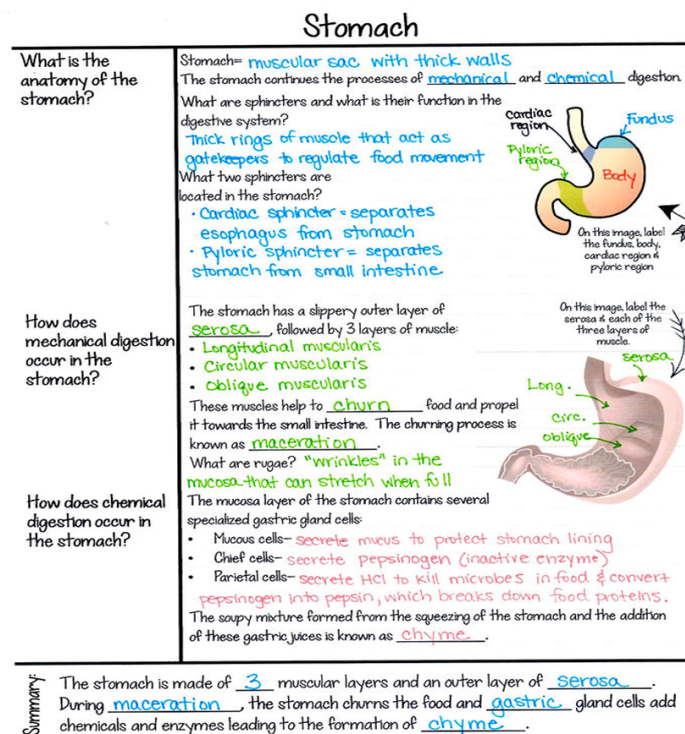 Stomach
What is the
anatomy of the
stomach?
Stomach= muscular sac with thick walls
The stomach continues the processes of mechanical and chemical digestion.
What are sphincters and what is their function in the
digestive system?
Thick rings of muscle that act as
gatekeepers to regulate food movement
What two sphincters are
located in the stomach?
• Cardiac sphincter = separates
esophagus from stomach
• Pyloric sphincter = separates
stomach from small intestine
Cardiac
region
Fundus
Pyloric
region
Body
On this image, label
the fundus, body,
cardiac region &
pyloric region
How does
mechanical digestion
occur in the
stomach?
The stomach has a slippery outer layer of
serosa, followed by 3 layers of muscle:
• Longitudinal muscularis
• Circular muscularis
• Oblique muscularis
These muscles help to churn food and propel
it towards the small intestine. The churning process is
known as maceration.
What are rugae? "Wrinkles" in the
mucosa that can stretch when full
On this image, label the
serosa & each of the
three layers of
muscle.
serosa
Long.
Circ.
oblique
How does chemical
digestion occur in
the stomach?
The mucosa layer of the stomach contains several
specialized gastric gland cells:
• Mucous cells- secrete mucus to protect stomach lining
• Chief cells- secrete pepsinogen (inactive enzyme)
• Parietal cells- secrete HCl to kill microbes in food & convert
pepsinogen into pepsin, which breaks down food proteins.
The soupy mixture formed from the squeezing of the stomach and the addition
of these gastric juices is known as chyme.
Summary:
The stomach is made of 3 muscular layers and an outer layer of serosa.
During maceration, the stomach churns the food and gastric gland cells add
chemicals and enzymes leading to the formation of chyme.